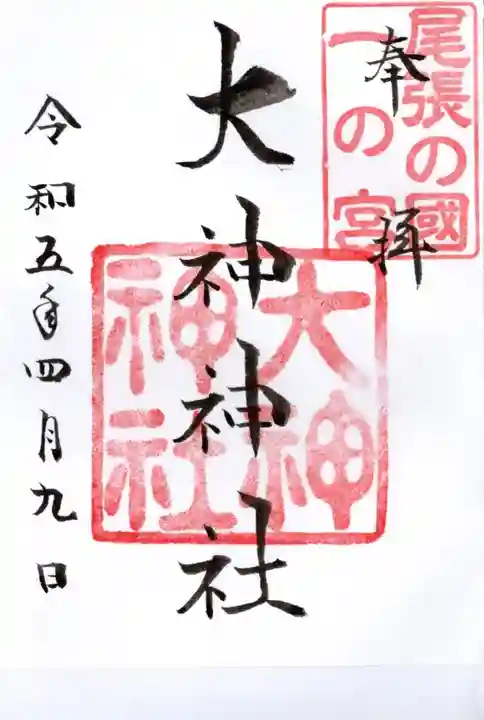 奉拝
尾張の國
一の宮
大神神社
大神
神社
令和五年四月九日